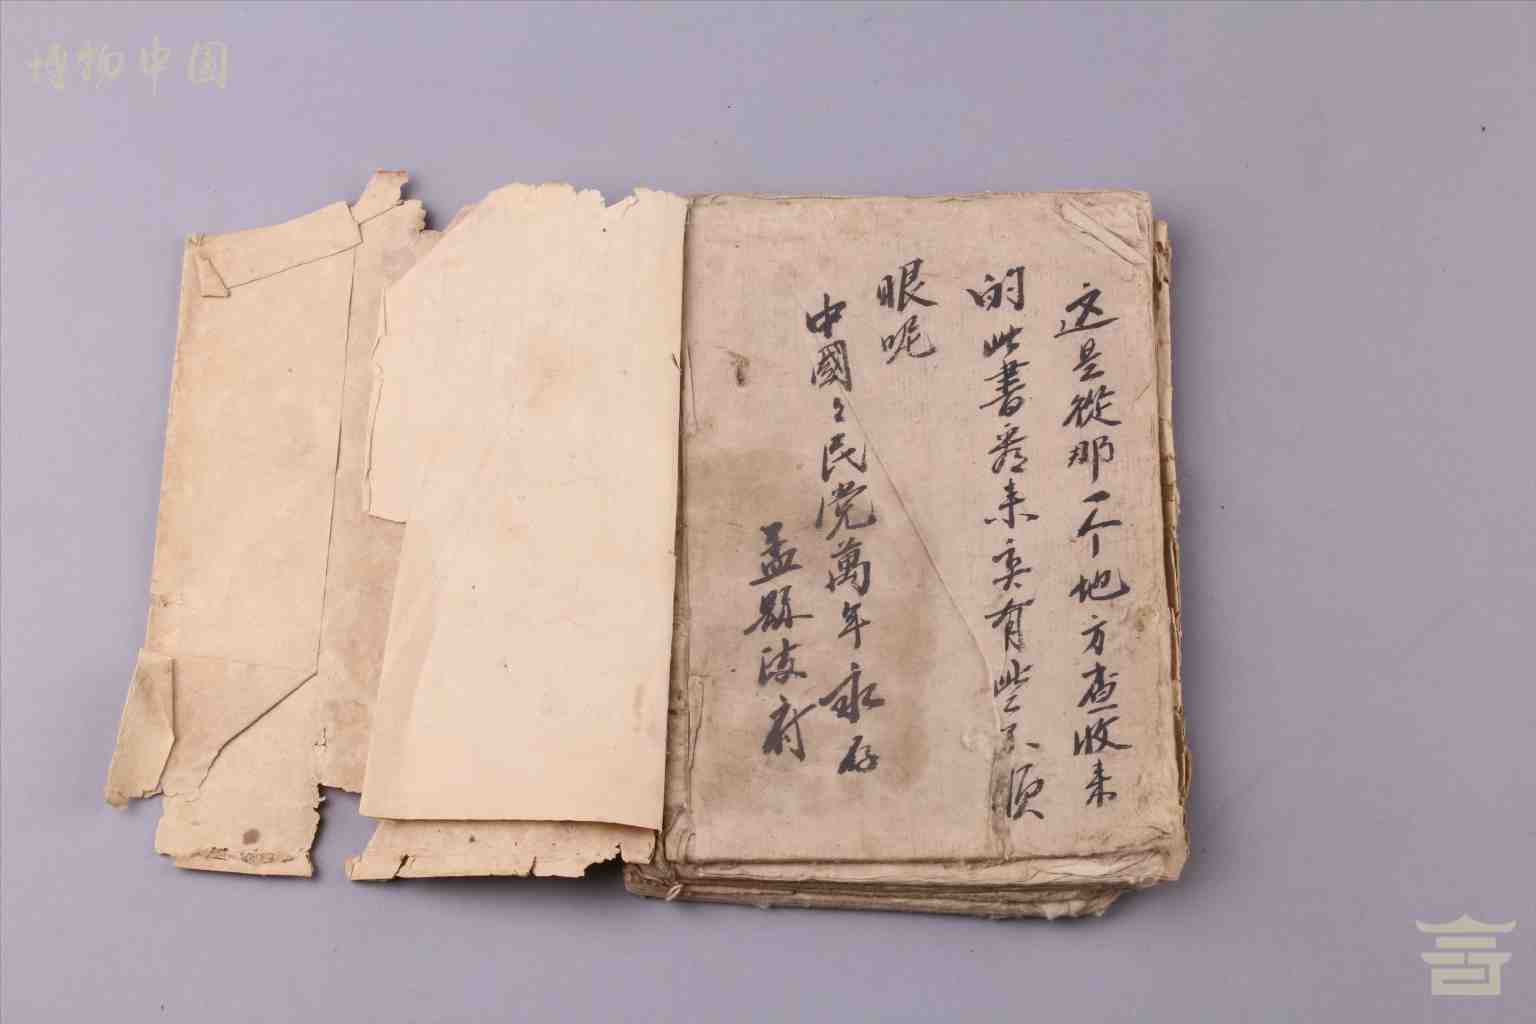 博物中国
这是從那一个地方查收来
的此書看来实有些不順
眼呢
中國々民党萬年永存
孟縣政府